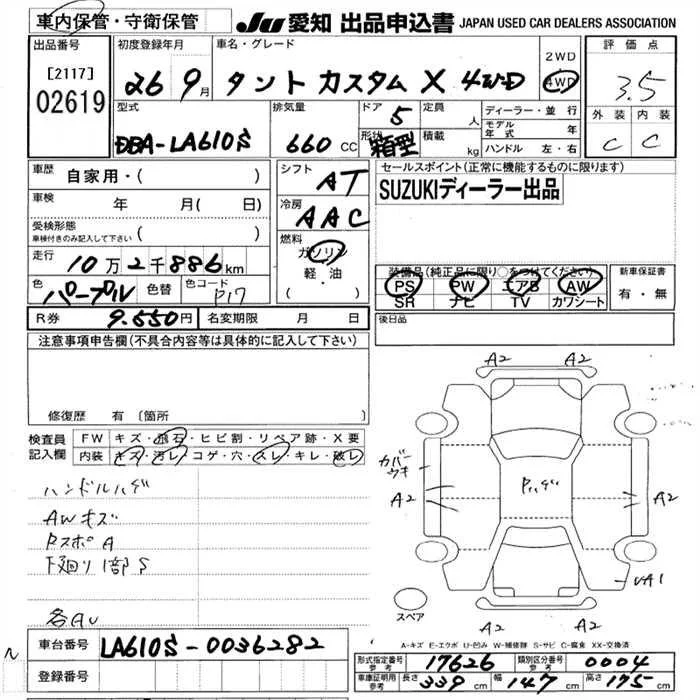 車内保管・守衛保管
JU 愛知 出品申込書 JAPAN USED CAR DEALERS ASSOCIATION
出品番号
[2117]
02619
初度登録年月
26 9月
車名・グレード
タント カスタム X 4WD
2WD
4WD
評価点
3.5
外装 内装
C C
型式
DBA-LA610S
排気量
660 CC
ドア 5
形状 箱型
定員 人
積載 kg
ディーラー・並行
モデル年式 年
ハンドル 左・右
車歴 自家用・( )
車検 年 月( 日)
受検形態
車検付きのみ記入して下さい ( )
走行 10万2千886km
色 パープル 色替 色コード P17
シフト AT
冷房 AAC
燃料
ガソリン
軽・油
( )
セールスポイント(正常に機能するものに限ります)
SUZUKIディーラー出品
装備品(純正品に限り○をつけてください)
PS PW エアB AW
SR ナビ TV カワシート
新車保証書
有・無
R券 9.550円 名変期限 月 日
後日品
注意事項申告欄(不具合内容等は具体的に記入して下さい)
修復歴 有 〔箇所
検査員記入欄
FW キズ・飛石・ヒビ割・リペア跡・X要
内装 キズ・汚レ・コゲ・穴・スレ・キレ・破レ
ハンドルハゲ
AWキズ
RスポA
下廻り1部S
各AU
A2 A2
カバーウキ
A2
Rハゲ
A2
UA1
A2 A2
スペア
A-キズ E-エクボ U-凹み W-補修跡 S-サビ C-腐食 XX-交換済
車台番号 LA610S-0036282
登録番号
形式指定番号 参考 17626 類別区分番号 参考 0004
車庫証明用 参考 長さ 339cm 幅 147cm 高さ 175cm